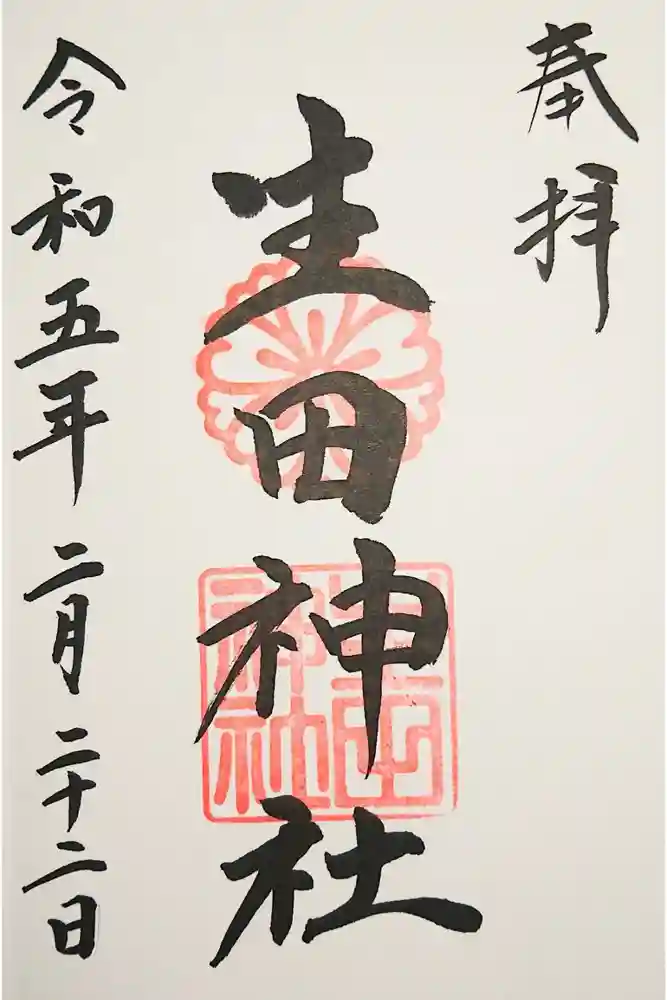 奉拝
生田神社
生田神社
令和五年二月二十二日